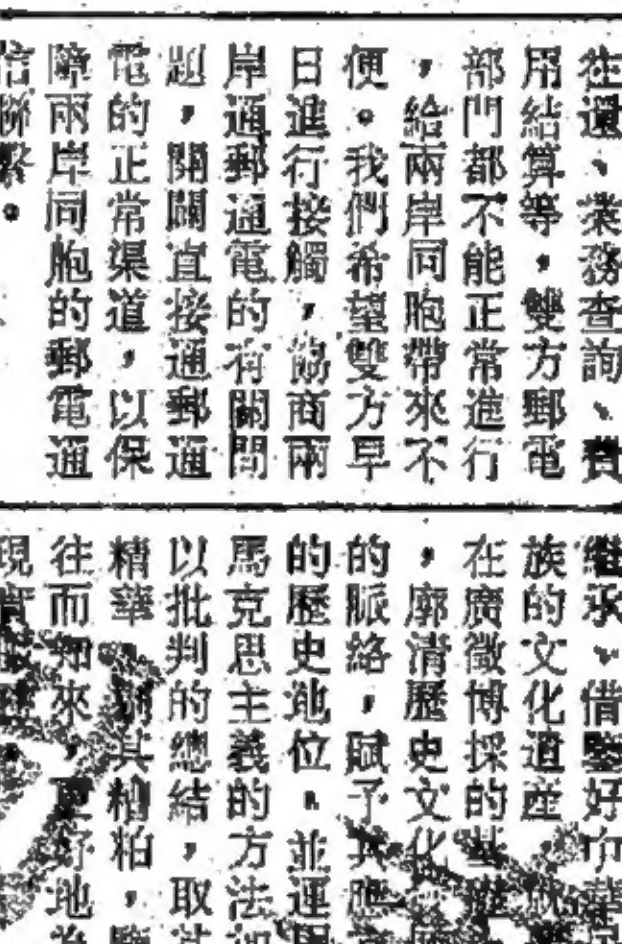 往還、業務查詢、費
用結算等，雙方郵電
部門都不能正常進行
，給兩岸同胞帶來不
便。我們希望雙方早
日進行接觸，協商兩
岸通郵通電的有關問
題，開闢直接通郵通
電的正常渠道，以保
障兩岸同胞的郵電通
信聯繫。
繼承、借鑒好中華民
族的文化遺產，
在廣徵博採的基礎
，廓清歷史文化
的脈絡，賦予其應
的歷史地位。並運用
馬克思主義的方法加
以批判的總結，取其
精華，剔其糟粕，鑒
往而知來，更好地為
現實